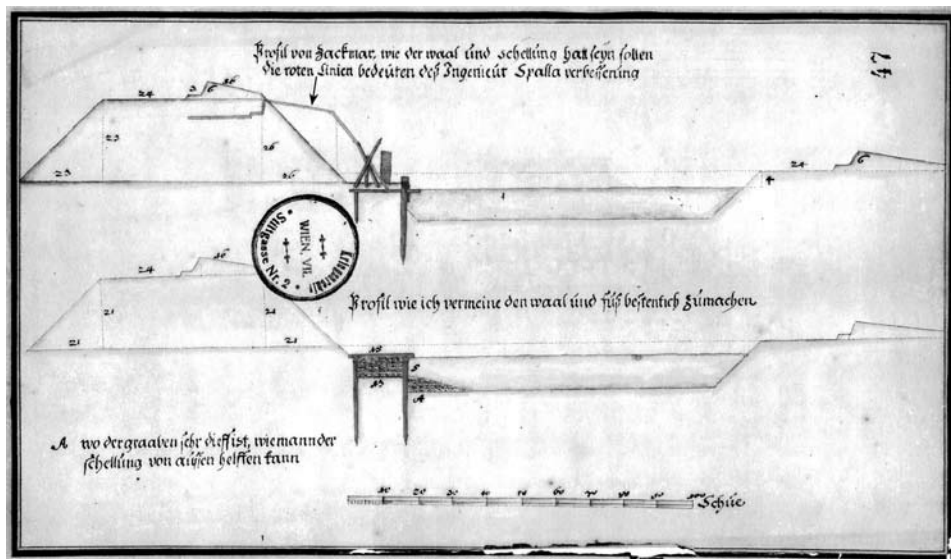 Profil von Zackmar, wie der waal und schellung hatt seyn sollen
die roten Linien bedeuten deß Ingenieur Spalla verbesserung
47
24 3 6 26
23 26
23 26
24 6
4
1
Kriegsarchiv
WIEN, VII.
Stiftgasse Nr. 2
24 16
Profil wie ich vermeine den waal und füß bestentich zumachen
21 21
21 21
18
5
13
A
A wo der graaben sehr dieff ist, wie mann der
schellung von aussen helffen kann
10 20 30 40 50 60 70 80 90 100 Schüe